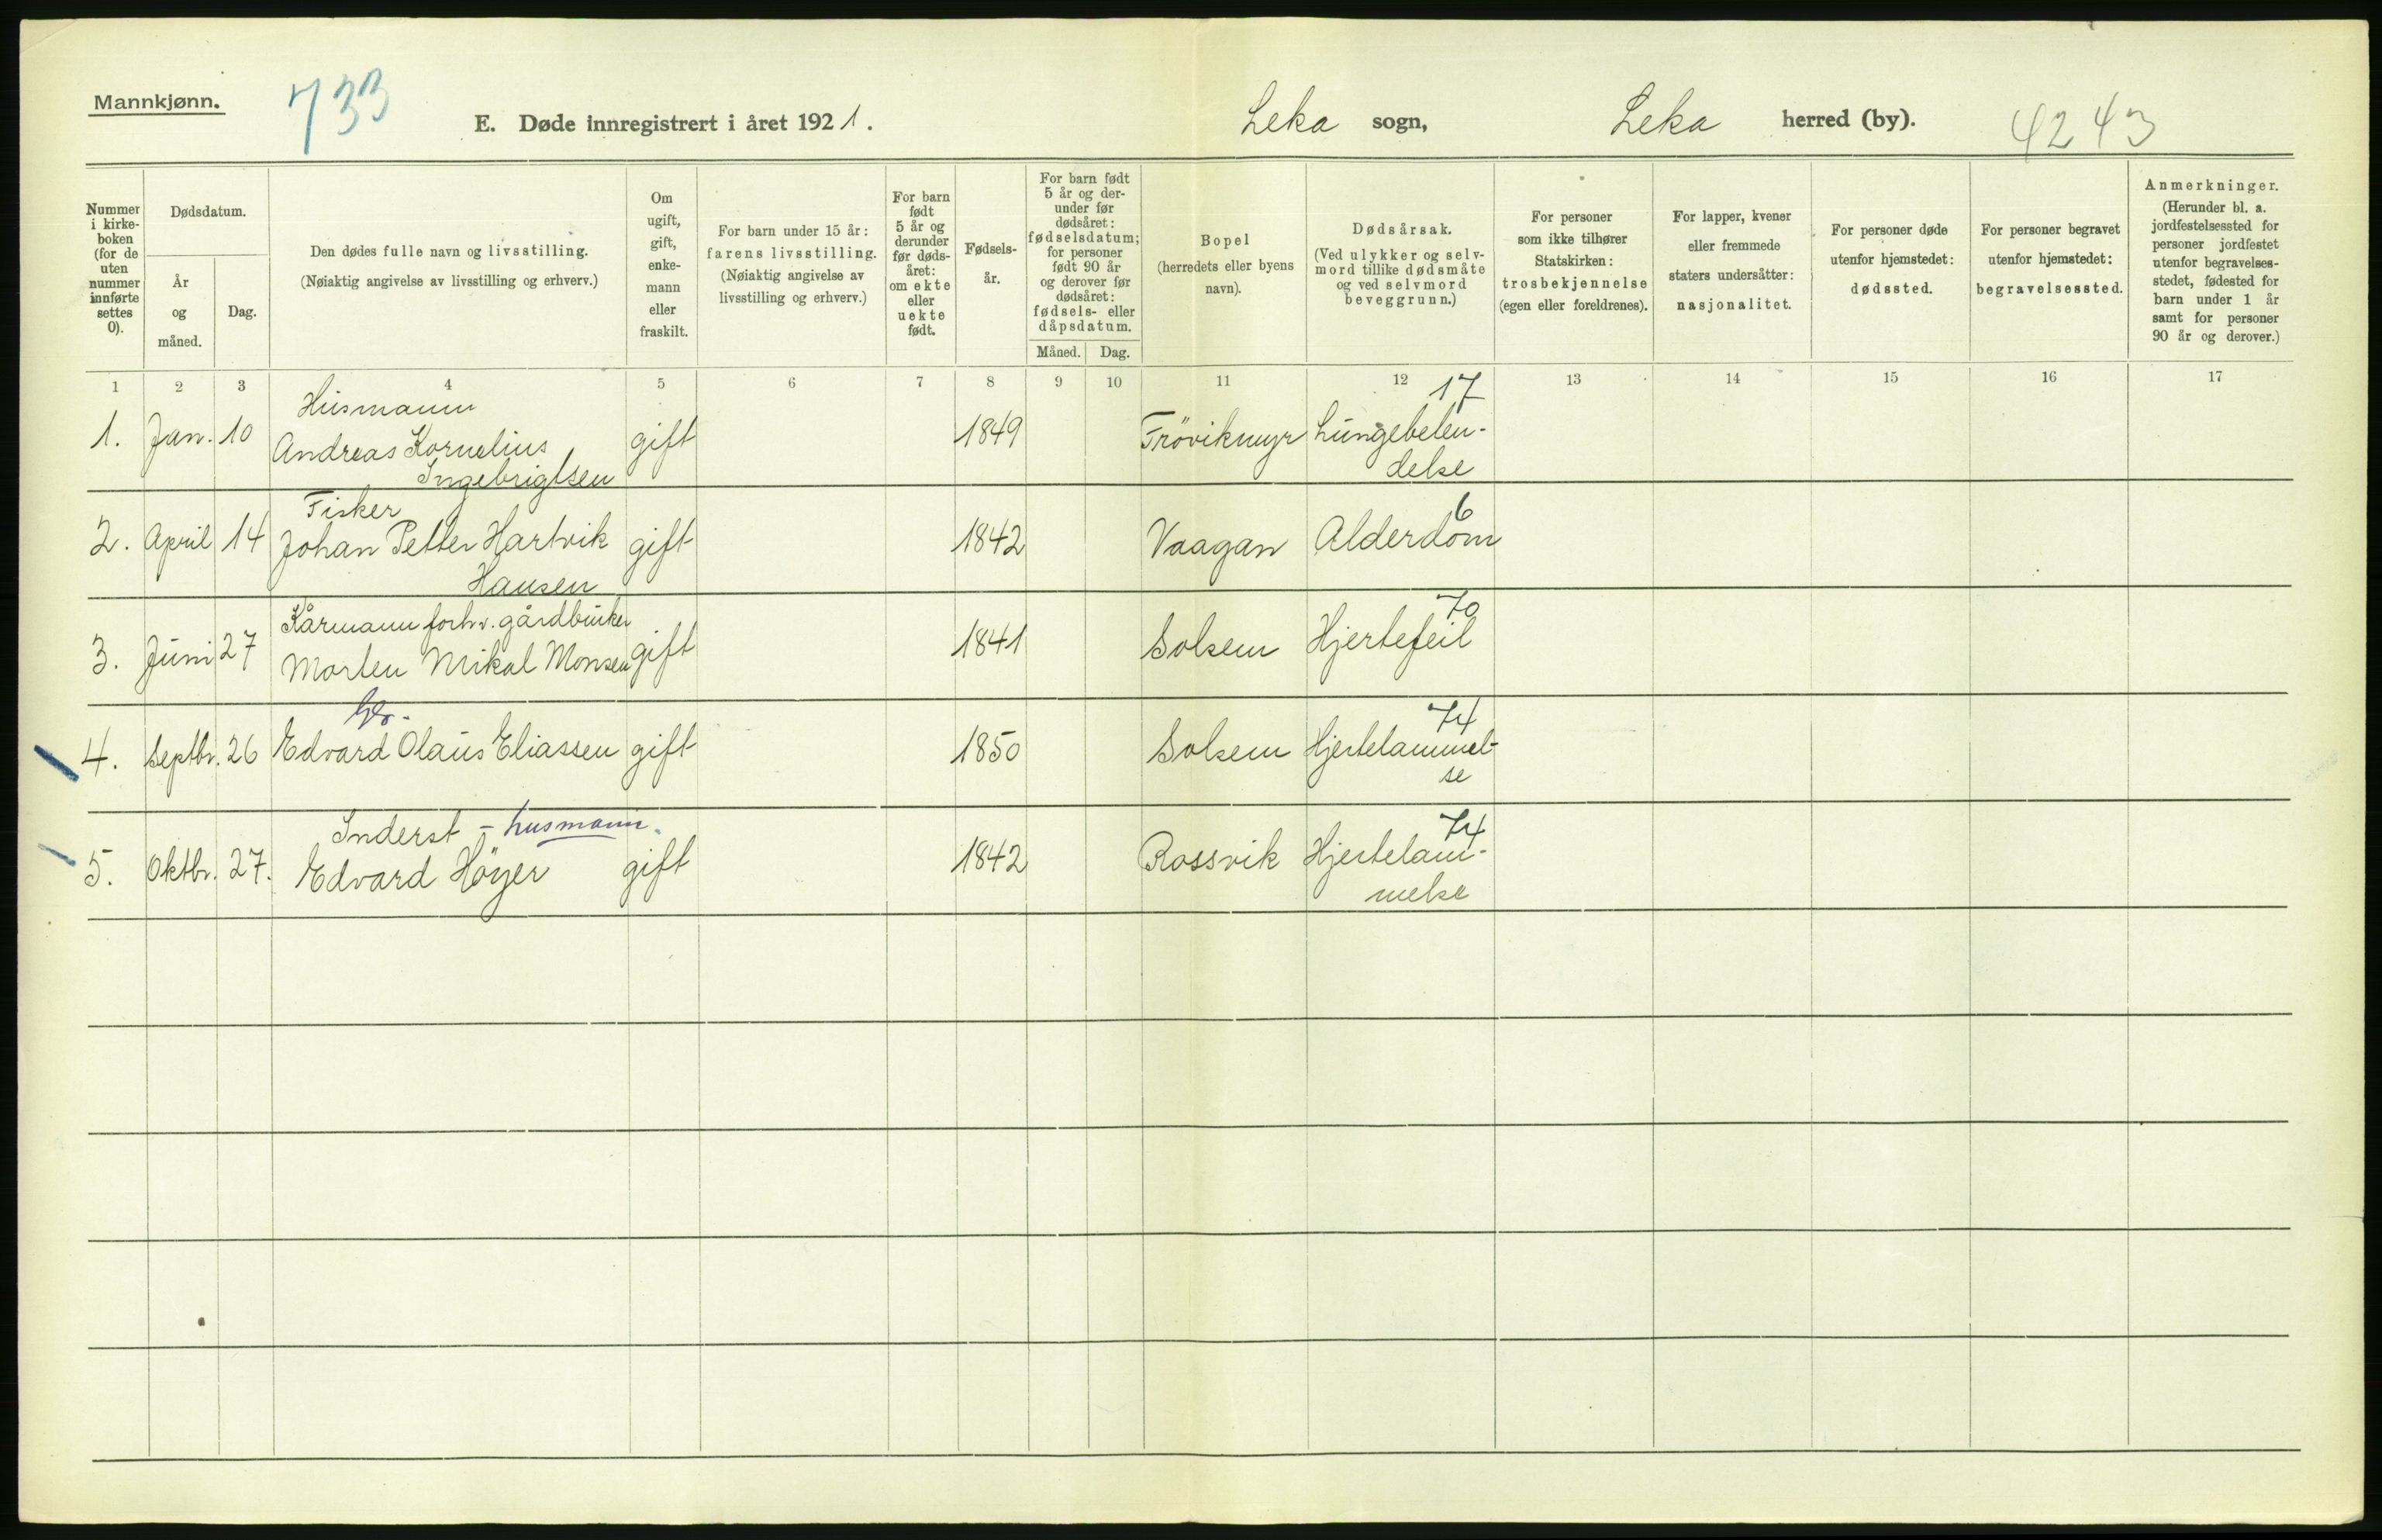 Mannkjønn.
733
E. Døde innregistrert i året 1921.
Leka sogn,
Leka herred (by).
4243
Nummer i kirke-boken (for de uten nummer innførte settes 0).
Dødsdatum.
År og måned.
Dag.
Den dødes fulle navn og livsstilling.
(Nøiaktig angivelse av livsstilling og erhverv.)
Om ugift, gift, enke-mann eller fraskilt.
For barn under 15 år: farens livsstilling.
(Nøiaktig angivelse av livsstilling og erhverv.)
For barn født 5 år og derunder før døds-året: om ekte eller uekte født.
Fødsels-år.
For barn født 5 år og der-under før dødsåret: fødselsdatum; for personer født 90 år og derover før dødsåret: fødsels- eller dåpsdatum.
Måned.
Dag.
Bopel
(herredets eller byens navn).
Dødsårsak.
(Ved ulykker og selv-mord tillike dødsmåte og ved selvmord beveggrunn.)
For personer som ikke tilhører Statskirken: trosbekjennelse (egen eller foreldrenes).
For lapper, kvener eller fremmede staters undersåtter: nasjonalitet.
For personer døde utenfor hjemstedet: dødssted.
For personer begravet utenfor hjemstedet: begravelsessted.
Anmerkninger.
(Herunder bl. a. jordfestelsessted for personer jordfestet utenfor begravelses-stedet, fødested for barn under 1 år samt for personer 90 år og derover.)
1 2 3 4 5 6 7 8 9 10 11 12 13 14 15 16 17
Husmann 17
1. Jan. 10 Andreas Kornelius gift 1849 Frövikmyr Lungebeten-
Ingebrigtsen delse
Fisker 6
2. April 14 Johan Petter Hartvik gift 1842 Vaagan Alderdom
Hansen
Kårmann forhv. gårdbruker 70
3. Juni 27 Morten Mikal Monsen gift 1841 Solsem Hjertefeil
Gbr. 74
4. Septbr. 26 Edvard Olaus Eliassen gift 1850 Solsem Hjertelammel-
se
Inderst - husmann. 74
5. Oktbr. 27. Edvard Höyer gift 1842 Rossvik Hjertelam-
melse